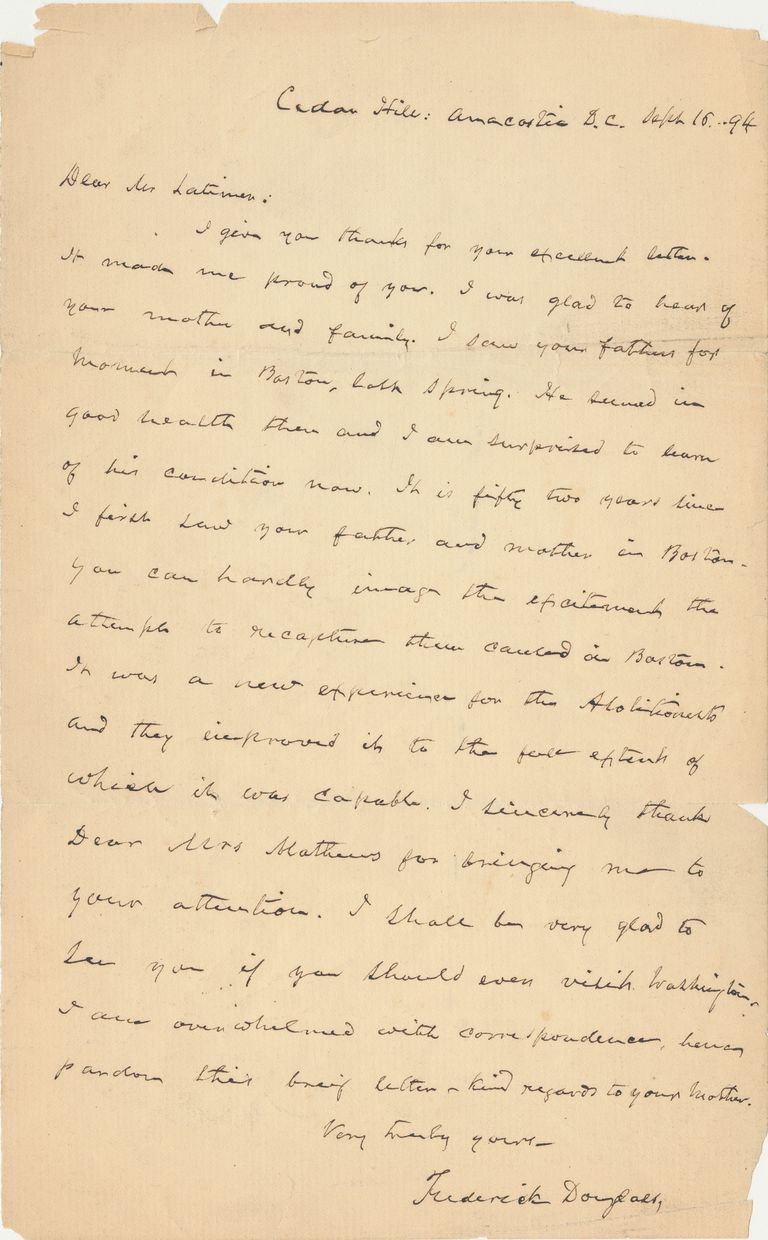 Cedar Hill: Anacostia D.C. Sept 16. 94
Dear Mr Latimer:
I give you thanks for your excellent letter.
It made me proud of you. I was glad to hear of
your mother and family. I saw your father for
moment in Boston, last Spring. He seemed in
good health then and I am surprised to learn
of his condition now. It is fifty two years since
I first saw your father and mother in Boston.
you can hardly image the excitement the
attempt to recapture them caused in Boston.
It was a new experience for the Abolitionists
and they improved it to the full extent of
which it was capable. I sincerely thank
Dear Mrs Mathews for bringing me to
your attention. I shall be very glad to
see you if you should ever visit Washington.
I am overwhelmed with correspondence, hence
pardon this breif letter - Kind regards to your Mother.
Very truly yours -
Frederick Douglass,